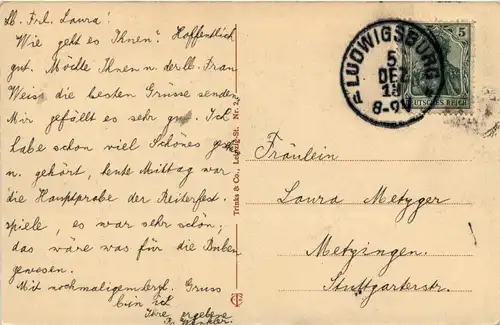 Lb. Frl. Laura!
Wie geht es Ihnen? Hoffentlich
gut. Möchte Ihnen u. der lb. Frau
Weiss die besten Grüsse senden.
Mir gefällt es sehr gut. Ich
habe schon viel Schönes ges.
u. gehört, heute Mittag war
die Hauptprobe der Reiterfest-
spiele, es war sehr schön;
das wäre was für die Buben
gewesen.
Mit nochmaligem herzl. Gruss
bin ich
Ihre ergebene
Trinks & Co., Leipzig-St. Nr. 2
LUDWIGSBURG
5
DEZ
8-9V
5
DEUTSCHES REICH
Fräulein
Laura Metzger
Metzingen.
Stuttgarterstr.